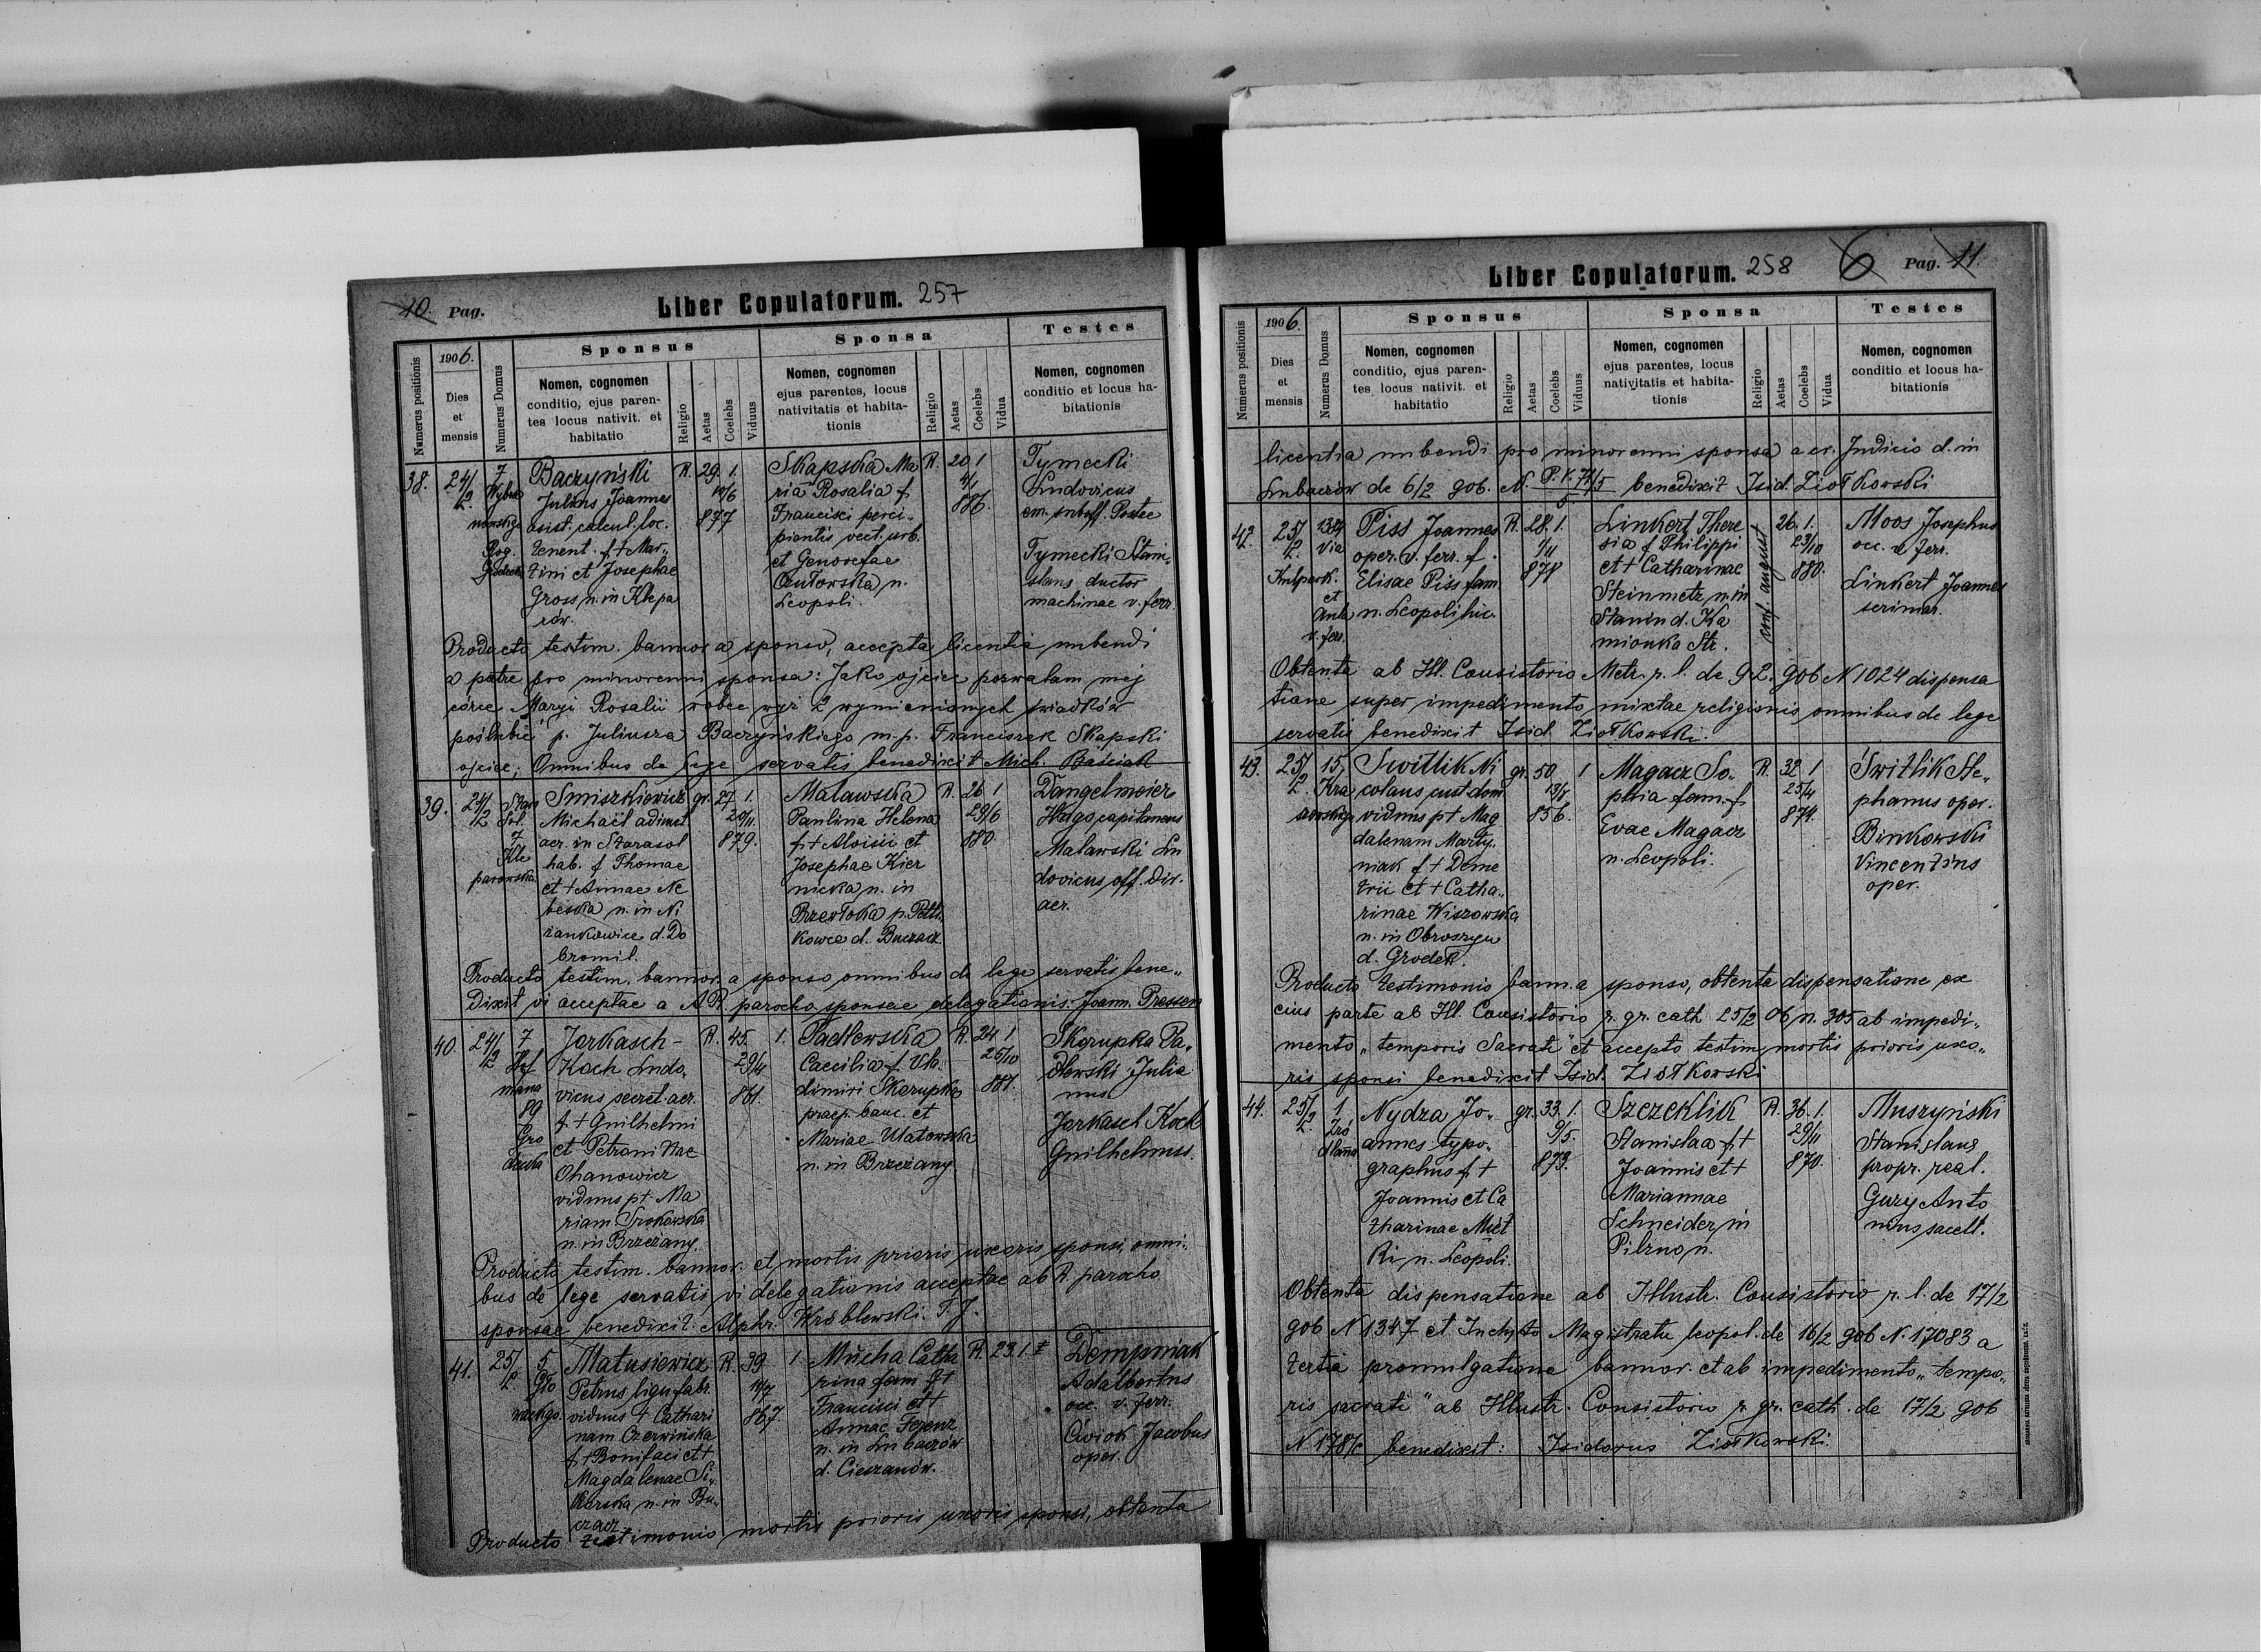 10. Pag. Liber Copulatorum. 257
Numerus positionis
1906.
Dies et mensis
Numerus Domus
Sponsus
Nomen, cognomen
conditio, ejus paren-
tes locus nativit. et
habitatio
Religio
Aetas
Coelebs
Viduus
Sponsa
Nomen, cognomen
ejus parentes, locus
nativitatis et habita-
tionis
Religio
Aetas
Coelebs
Vidua
Testes
Nomen, cognomen
conditio et locus ha-
bitationis
38. 24/2 7
Rog.
Baczyński R. 29. 1.
Julius Joannes 10/6
asist. calcul. loc. 877
tenent. f + Mar-
tini et Josephae
Gross n. in Klepa
rów.
Skapska Ma R. 20 1
ria Rosalia f 4/1
Francisci perci- 886.
pientis vect. urb.
et Genovefae
n.
Leopoli.
Tymecki
Ludovicus
em. suboff. Postae
Tymecki Stani-
slaus ductor
machinae v. ferr.
Producto testim. bannor a sponso, accepta licentia nubendi
a patre pro minorenni sponsa: Jako ojciec pozwalam mej
córce Maryi Rosalii wobec wyż 2 wymienionych świadków
poślubić p. Juliusza Baczyńskiego m. p. Franciszek Skapski
ojciec; Omnibus de lege servatis benedixit Mich. Baściak
39. 24/2 Stara
Sol.
7
Kle
parowska.
Smiszkiewicz gr. 27 1.
Michaël adiunct 20/11
aer. in Starasol 879.
hab. f Thomae
et + Annae Ne
beska n. in Ni
żankowice d. Do
bromil.
Malawska R. 26 1
Paulina Helena 29/6
f + Aloisii et 880.
Josephae Kier
nicka n. in
p. Petli
kowce d. Buczacz.
Dangelmaier
Hugo, capitaneus
Malawski Lu
dovicus, off. dir.
aer.
Producto testim. bannor. a sponso omnibus de lege servatis bene-
dixit vi acceptae a AR. parocho sponsae delegationis: Joann. Pressen
40. 24/2 7
Hof
mana
89
Gro
decka
Jorkasch- R. 45. 1.
Koch Ludo- 29/4
vicus secret. aer. 861.
f + Guilhelmi
et Petronillae
Ohanowicz
viduus p + Ma
riam Srokowska
n. in Brzeżany.
Padlewska R. 24 1
Caecilia f Vla- 25/10
dimiri Skorupka 881.
praep. banc. et
Mariae Ulatowska
n. in Brzeżany
Skorupka Pa-
dlewski Julia
nus
Jorkasch Koch
Guilhelmus.
Producto testim. bannor. et mortis prioris uxoris sponsi, omni-
bus de lege servatis vi delegationis acceptae ab R. parocho
sponsae benedixit. Alph. Wróblewski. T. J.
41. 25/2 5
Gło
wackigo.
Matusiewicz R. 39. 1
Petrus lign. fabr. 10/7
viduus + Cathari 867
nam Czerwińska
f + Bonifaci et +
Magdalenae Si-
korska n. in Bu-
czacz
Mucha Catha R. 23. 1.
rina fam f +
Francisci et +
Annae Ferenz
n. in Lubaczów
d. Cieszanów.
Dempniak
Adalbertus
occ. v. ferr.
Ćwiok Jacobus
oper.
Producto testimonio mortis prioris uxoris sponsi, obtenta
Liber Copulatorum. 258 6 Pag. 11.
Numerus positionis
1906.
Dies et mensis
Numerus Domus
Sponsus
Nomen, cognomen
conditio, ejus paren-
tes locus nativit. et
habitatio
Religio
Aetas
Coelebs
Viduus
Sponsa
Nomen, cognomen
ejus parentes, locus
nativitatis et habita-
tionis
Religio
Aetas
Coelebs
Vidua
Testes
Nomen, cognomen
conditio et locus ha-
bitationis
licentia nubendi pro minorenni sponsa a cr. Judicio d. in
Lubaczów de 6/2 906. N. benedixit Isid. Ziołkowski
42. 25/2
via
Kulpark.
et
v. ferr.
Piss Joannes R. 28. 1.
oper. v. ferr. f. 1/11
Elisae Piss fam. 878
n. Leopoli hic.
Linkert There 26. 1.
sia f Philippi 23/10
et + Catharinae 880.
Steinmetz n. in
Stanin d. Ka
mionka Str.
conf. august
Moos Josephus
occ. v. ferr.
Linkert Joannes
scriniar.
Obtenta ab Ill. Consistorio Metr. r. l. de 9.2. 906 N 1024 dispensa
tione super impedimento mixtae religionis omnibus de lege
servatis benedixit Isid. Ziołkowski.
43. 25/2 15,
Kra
szewskigo
Switlik Ni gr. 50. 1
colaus cust. dom.
viduus p + Mag 856.
dalenam Marty-
niak f + Deme
trii et + Catha-
rinae Wiszowska
n. in Obroszyn
d. Grodek.
Magacz So- R. 32 1
phia fam. f 25/4
Evae Magacz 874.
n. Leopoli.
Świtlik Ste-
phanus oper.
Binkowski
Vincentius
oper.
Producto testimonio bann. a sponso, obtenta dispensatione ex
eius parte ab Ill. Consistorio r. gr. cath 25/2 06, n. 305 ab impedi-
mento „temporis Sacrati" et accepto testim. mortis prioris uxo-
ris sponsi benedixit Isid. Ziołkowski
44. 25/2 1
Zró
dlana
Nydza Jo- gr. 33. 1.
annes typo- 9/5.
graphus f + 873.
Joannis et Ca
tharinae
n. Leopoli.
Szczeklik R. 36. 1.
Stanislaa f + 29/11
Joannis et + 870.
Mariannae
Schneider in
Pilzno n.
Muszyński
Stanislaus
propr. real.
Gury Anto
nius sacell.
Obtenta dispensatione ab Illustr. Consistorio r. l. de 17/2
906 N 1347 et Inchyto Magistratu leopol. de 16/2 906 N. 17083 a
tertia promulgatione bannor. et ab impedimento „tempo-
ris sacrati" ab Illustr. Consistorio r. gr. cath. de 17/2 906
benedixit: Isidorus Ziołkowski.